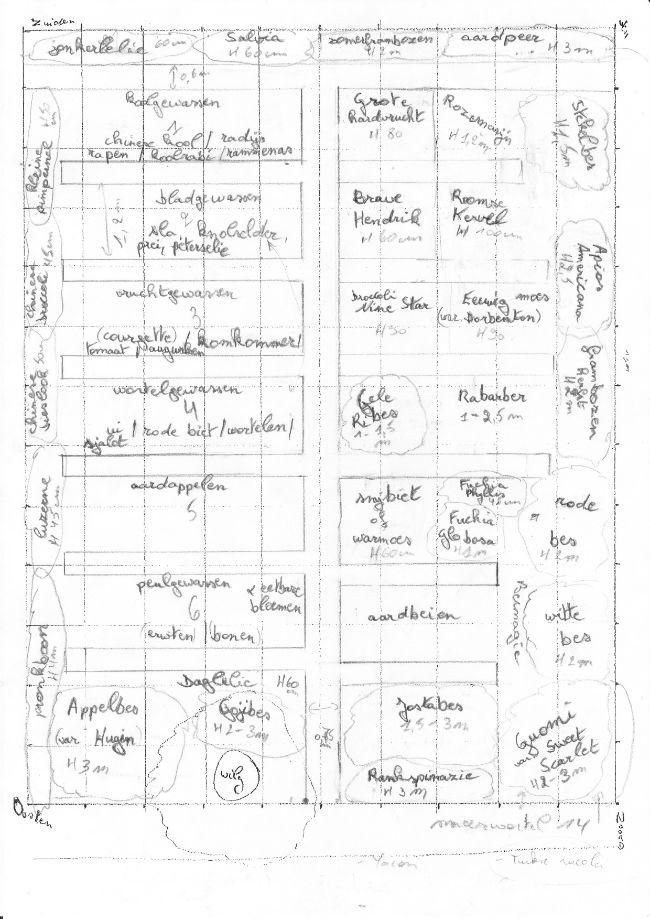 Zuiden
zonnerlelie 60 cm
Salvia
H 60 cm
zomerframbozen
H 2m
aardpeer
H 3m
0,6m
koolgewassen
1
chinese kool / radijs
rapen / koolrabi / rammenas
Grote
hardvrucht
H 80
Rozemarijn
H 1,2m
Stekelbes
H 1,5m
kleine
pimpernel
H 50 cm
1,2 m
bladgewassen
2
sla, knolselder,
prei, peterselie
Brave
Hendrik
H 60cm
Roomse
Kervel
H 100cm
Apios
Americana
chinese
broccoli 45cm
vruchtgewassen
3
(courgette) / komkommer /
tomaat
broccoli
Nine Star
H 90
Eeuwig moes
(var. Dorbenton)
H 90
frambozen
Herfst
H 2m
chinese
bieslook
wortelgewassen
4
ui / rode biet / wortelen /
sjalot
Gele
Ribes
1-1,5
m
Rabarber
1-2,5m
luzerne
H 45 cm
aardappelen
5
snijbiet
of
warmoes
H 60cm
Fuchia
Phyllis
Fuchia
globosa
H 1m
rode
bes
H 2m
peulgewassen
6
(erwten / bonen)
& eetbare
bloemen
aardbeien
Bernagie
witte
bes
H 2m
pronkboon
H 4m
Daglelie H60
cm
Appelbes
(var. Hugin)
H 3m
Gojibes
H 2-3m
wilg
Jostabes
2,5-3m
Rankspinazie
H 3m
Gumi
var Sweet
Scarlet
H 2-3m
Oosten
smeerwortel 14
- Yacon
- Turkse rucola